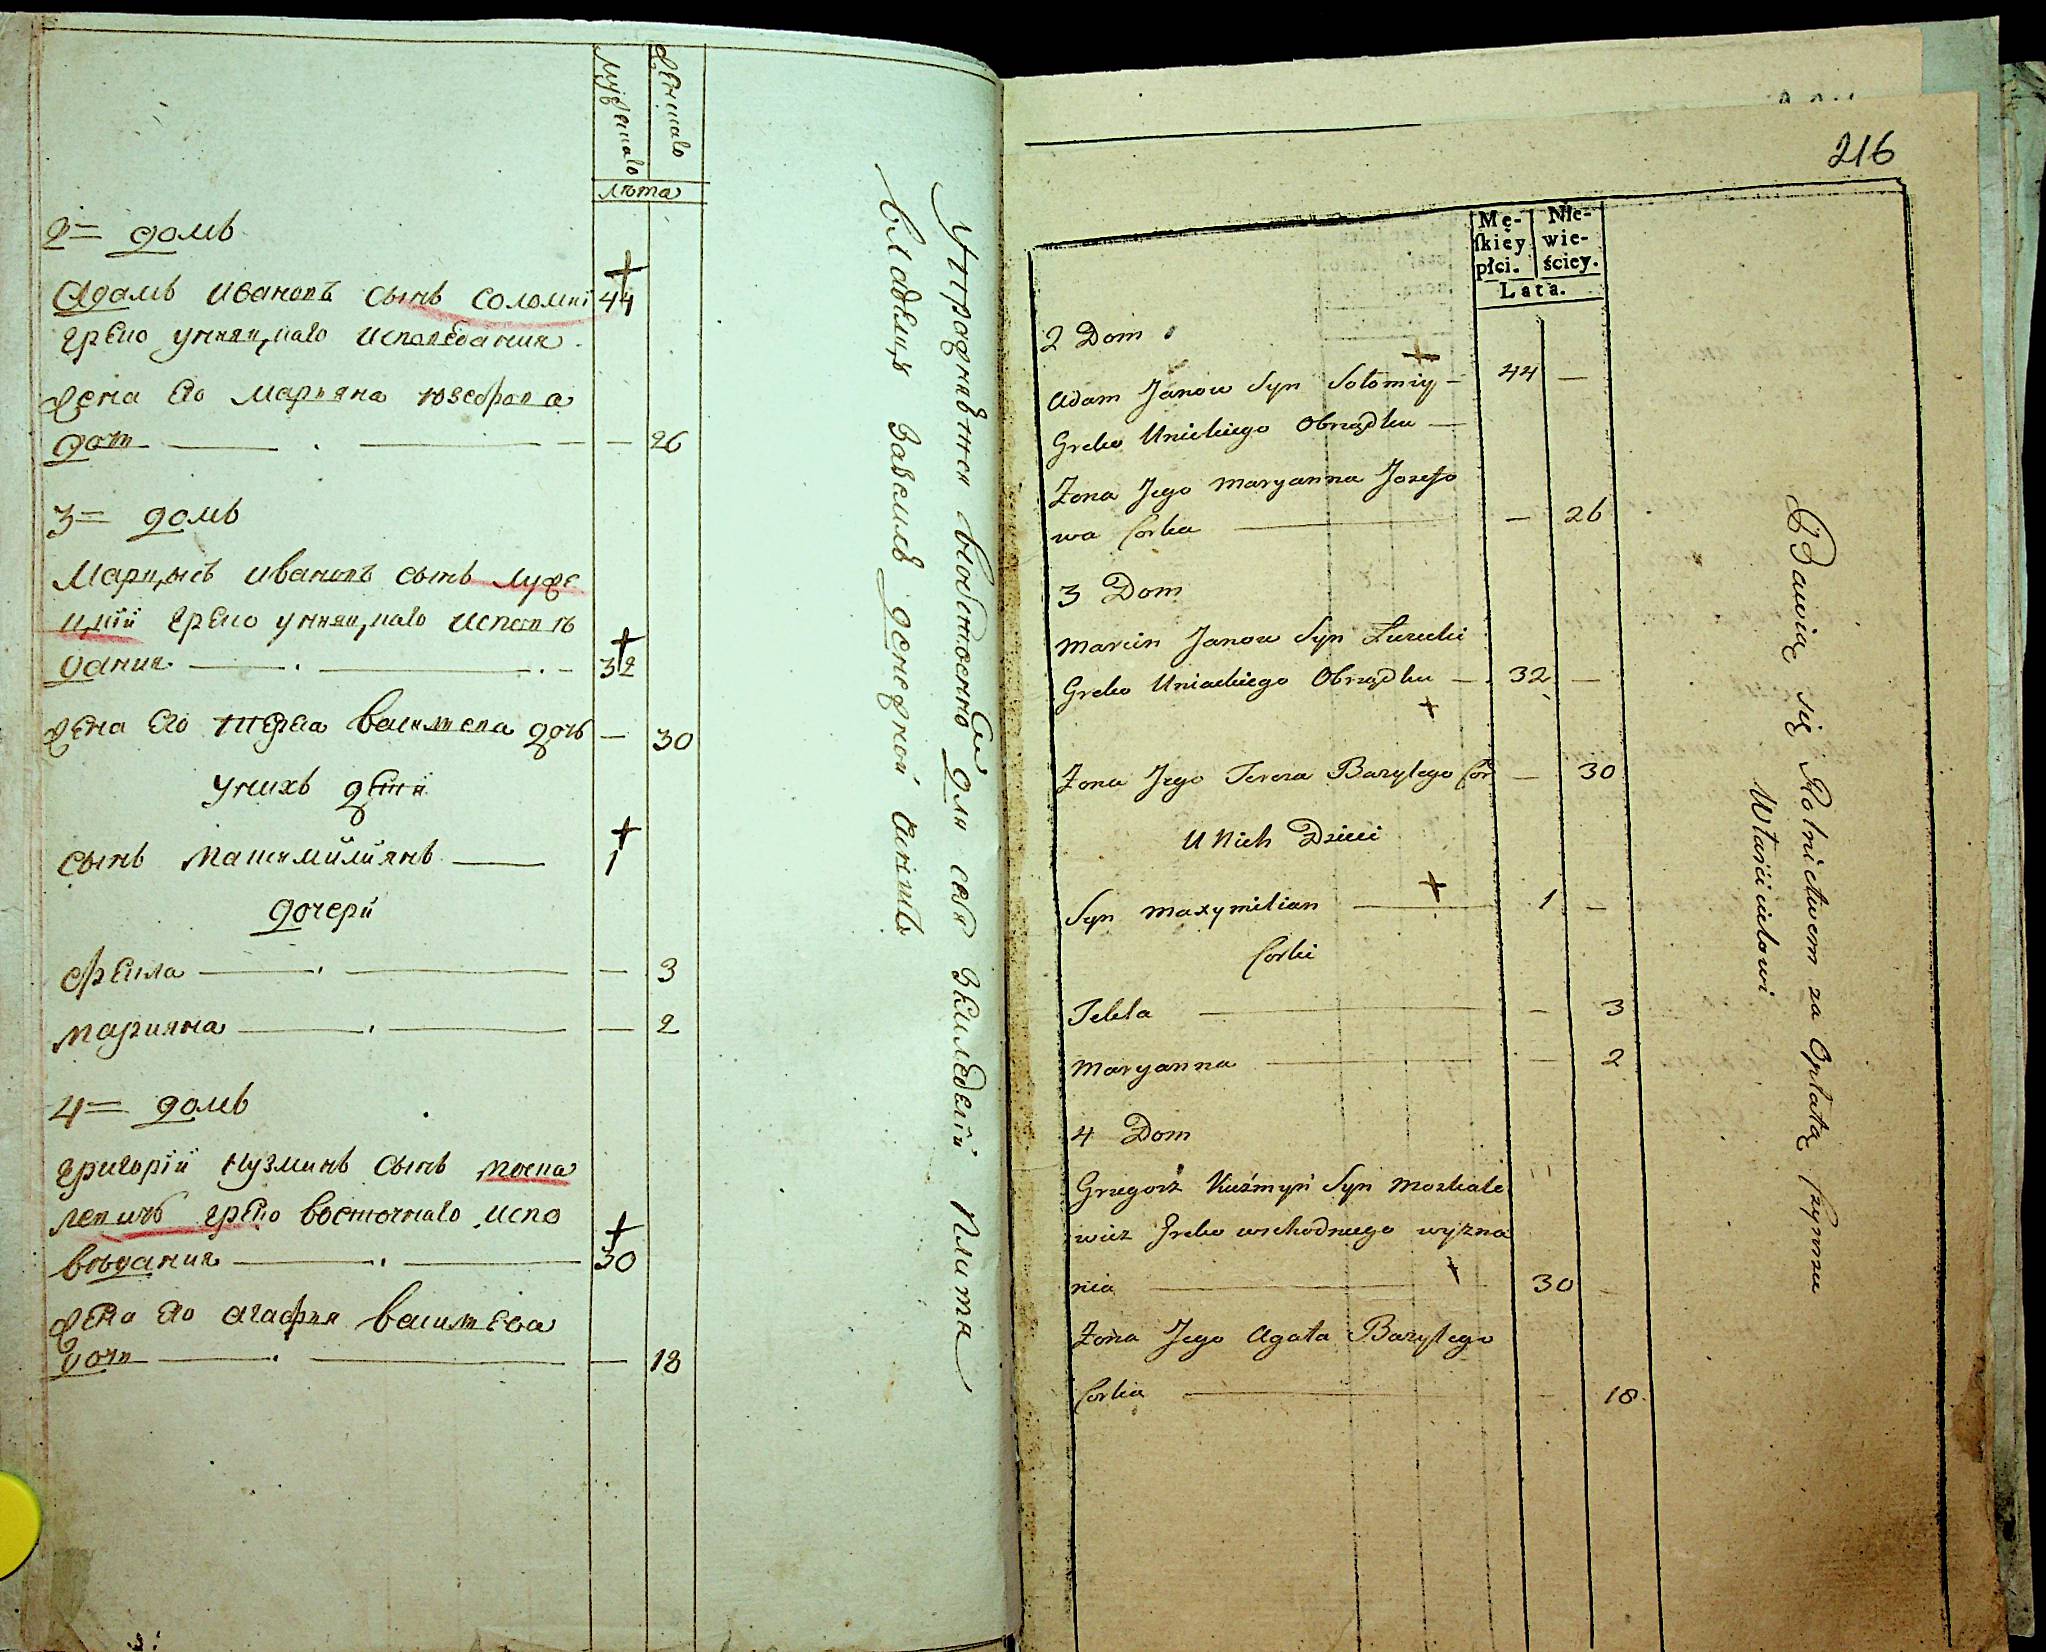 мужеско
женско
лѣта
2= домъ
Адамъ Ивановъ сынъ Соломиi 44
греко унияцкаго исповѣдания
жена его Марьяна Юзефова
дочь — — 26
3= домъ
Марцысъ Ивановъ сынъ Луже
цкiй греко унияцкаго исповѣ
дания — 32
жена его Тереса Васильева дочь — 30
у нихъ дѣти
сынъ Максимилiянъ — 1
дочери
Фекла — — 3
Марияна — — 2
4= домъ
Григорiй Кузминъ сынъ Моска
левичъ греко восточнаго испо
вѣдания — 30
жена его Агафия Васильева
дочь — — 18
Упражняются
владельцу денежной
216
Mę-
ſkiey
płci.
Nie-
wie-
ściey.
Lata.
2 Dom
Adam Janow Syn Sołomiy — 44 —
Greko Unickiego Obrządku —
Zona Jego Maryanna Jozefo
wa Corka — — 26
3 Dom
Marcin Janow Syn Łuzecki
Greko Uniackiego Obrządku — 32 —
Zona Jego Teresa Bazylego Cór — 30
U Nich Dzieci
Syn Maxymilian — 1 —
Corki
Tekla — — 3
Maryanna — — 2
4 Dom
Grzegorz Kuźmyń Syn Moskale
wicz Greko wschodniego wyzna
nia — 30
Zona Jego Agata Bazylego
Corka — — 18
Bawią się Rolnictwem za Opłatą Czynszu
Właścicielowi